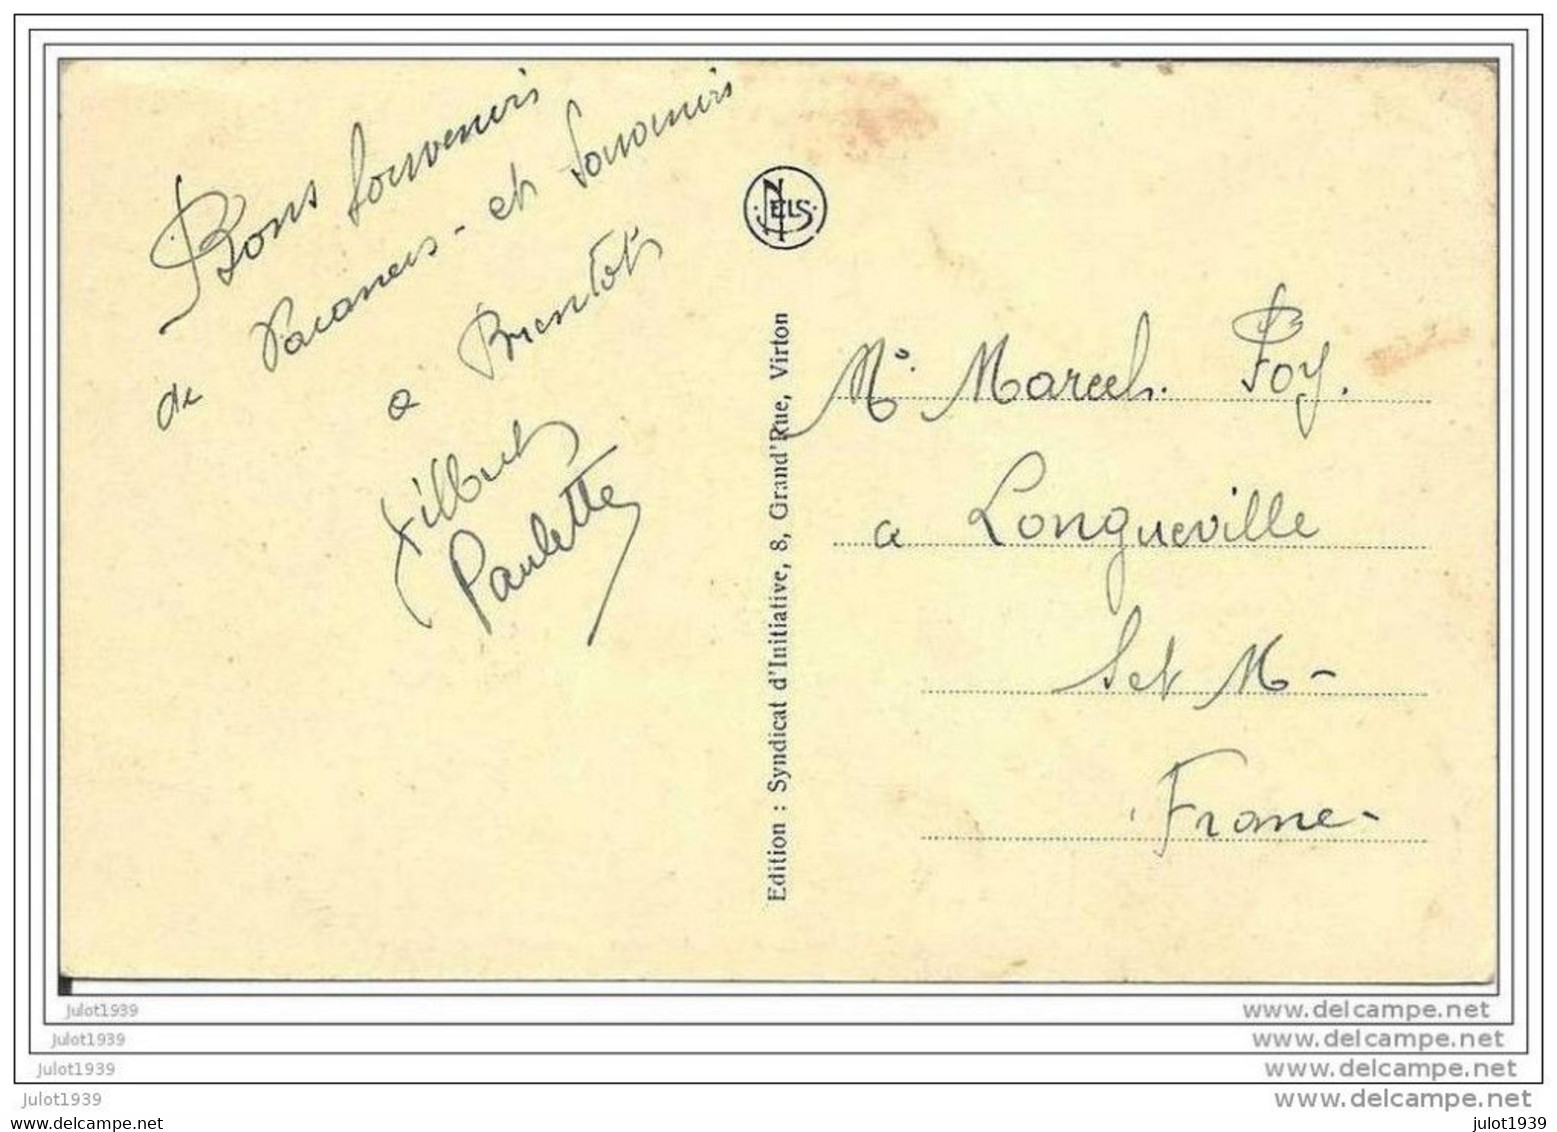 Bons souvenirs
de Vacances - et souvenirs
a Bientôt
Paulette
NELS
Edition : Syndicat d'Initiative, 8, Grand'Rue, Virton
Mr Marcel. Foy.
a Longueville
Set M-
France-
julot1939
www.delcampe.net
julot1939
www.delcampe.net
julot1939
www.delcampe.net
julot1939
www.delcampe.net
julot1939
www.delcampe.net
julot1939